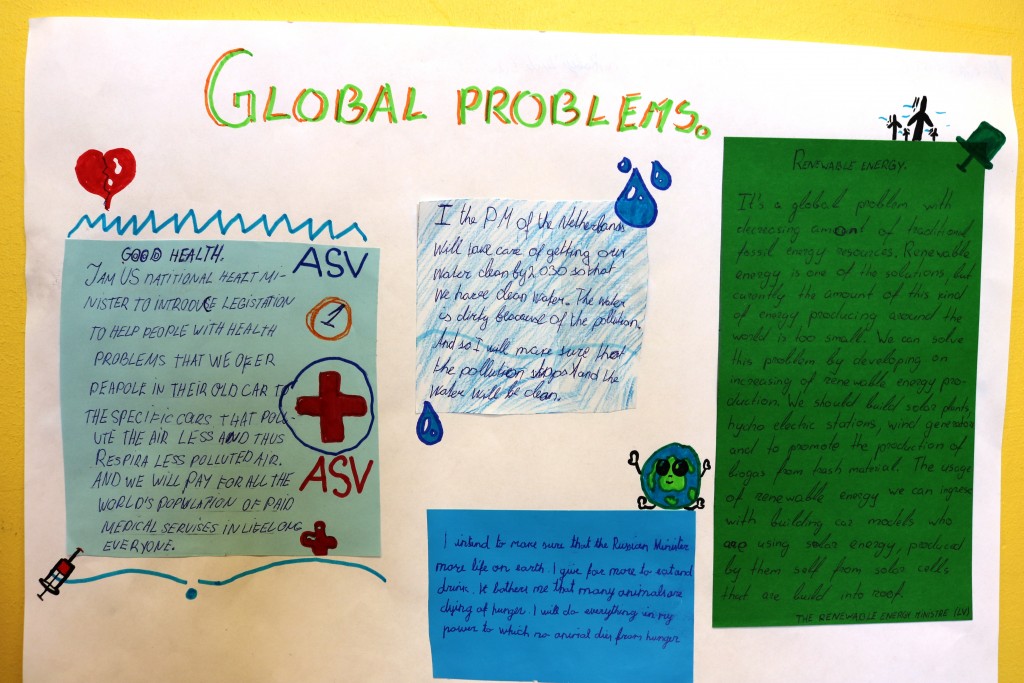 GLOBAL PROBLEMS.
GOOD HEALTH.
IAM US NATITIONAL HEALT MI-
NISTER TO INTRODUCE LEGISTATION
TO HELP PEOPLE WITH HEALTH
PROBLEMS THAT WE OFER
PEAPOLE IN THEIR OLD CAR TO
THE SPECIFIC CARS THAT POLL-
UTE THE AIR LESS AND THUS
RESPIRA LESS POLLUTED AIR.
AND WE WILL PAY FOR ALL THE
WORLD'S POPULATION OF PAID
MEDICAL SERVISES IN LIFELONG
EVERYONE.
ASV
1
ASV
I the PM of the Netherlands
will take care of getting our
water clean by 2030 so that
we have clean water. The water
is dirty because of the pollution.
And so I will make sure that
the pollution stops and the
water will be clean.
I intend to make sure that the Russian Minister
more life on earth. I give for more to eat and
drink. It bothers me that many animals are
dying of hunger. I will do everything in my
power to which no animal dies from hunger
RENEWABLE ENERGY.
It's a global problem with
decreasing amount of traditional
fossil energy resources. Renewable
energy is one of the solutions, but
currently the amount of this kind
of energy producing around the
world is too small. We can solve
this problem by developing on
increasing of renewable energy pro-
duction. We should build solar plants,
hydro electric stations, wind generators
and to promote the production of
biogas from trash material. The usage
of renewable energy we can ingrese
with building car models who
are using solar energy, produced
by them self from solar cells
that are build into roof.
THE RENEWABLE ENERGY MINISTRE (LV)